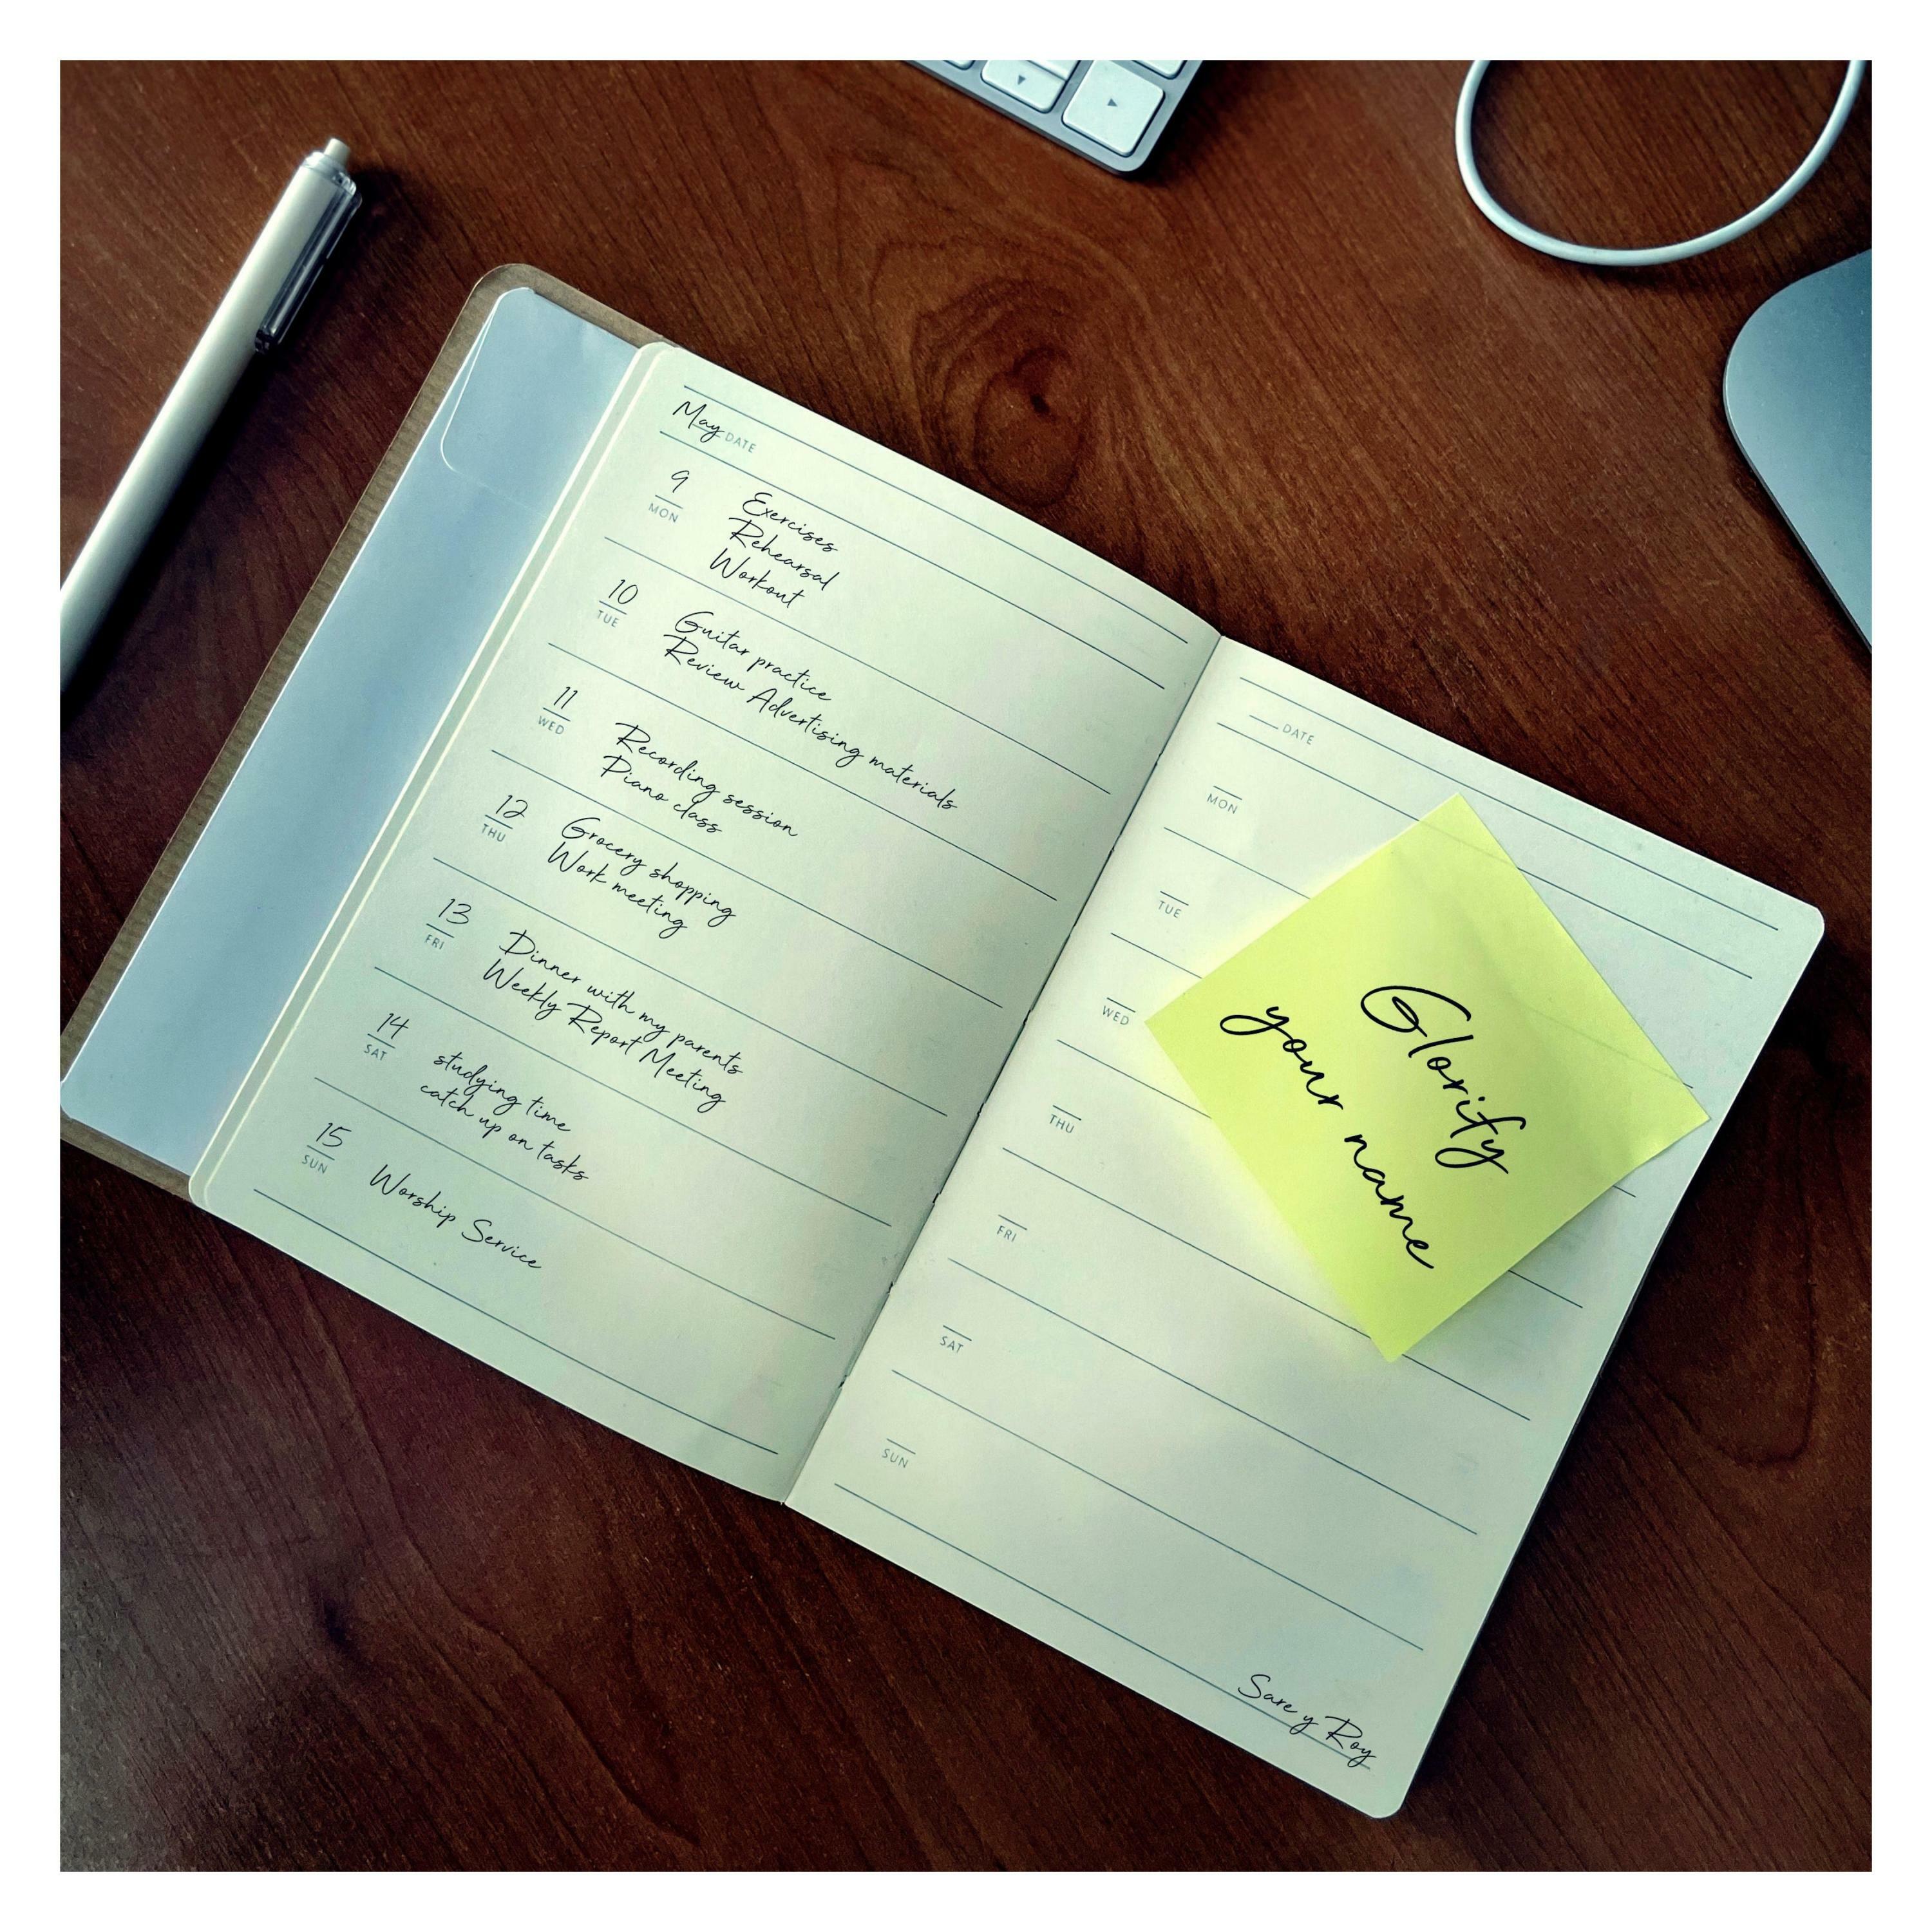 May DATE
9
MON
Exercises
Rehearsal
Workout
10
TUE
Guitar practice
Review Advertising materials
11
WED
Recording session
Piano class
12
THU
Grocery shopping
Work meeting
13
FRI
Dinner with my parents
Weekly Report Meeting
14
SAT
studying time
catch up on tasks
15
SUN
Worship Service
DATE
MON
TUE
WED
THU
FRI
SAT
SUN
Glorify
your name
Sare y Roy